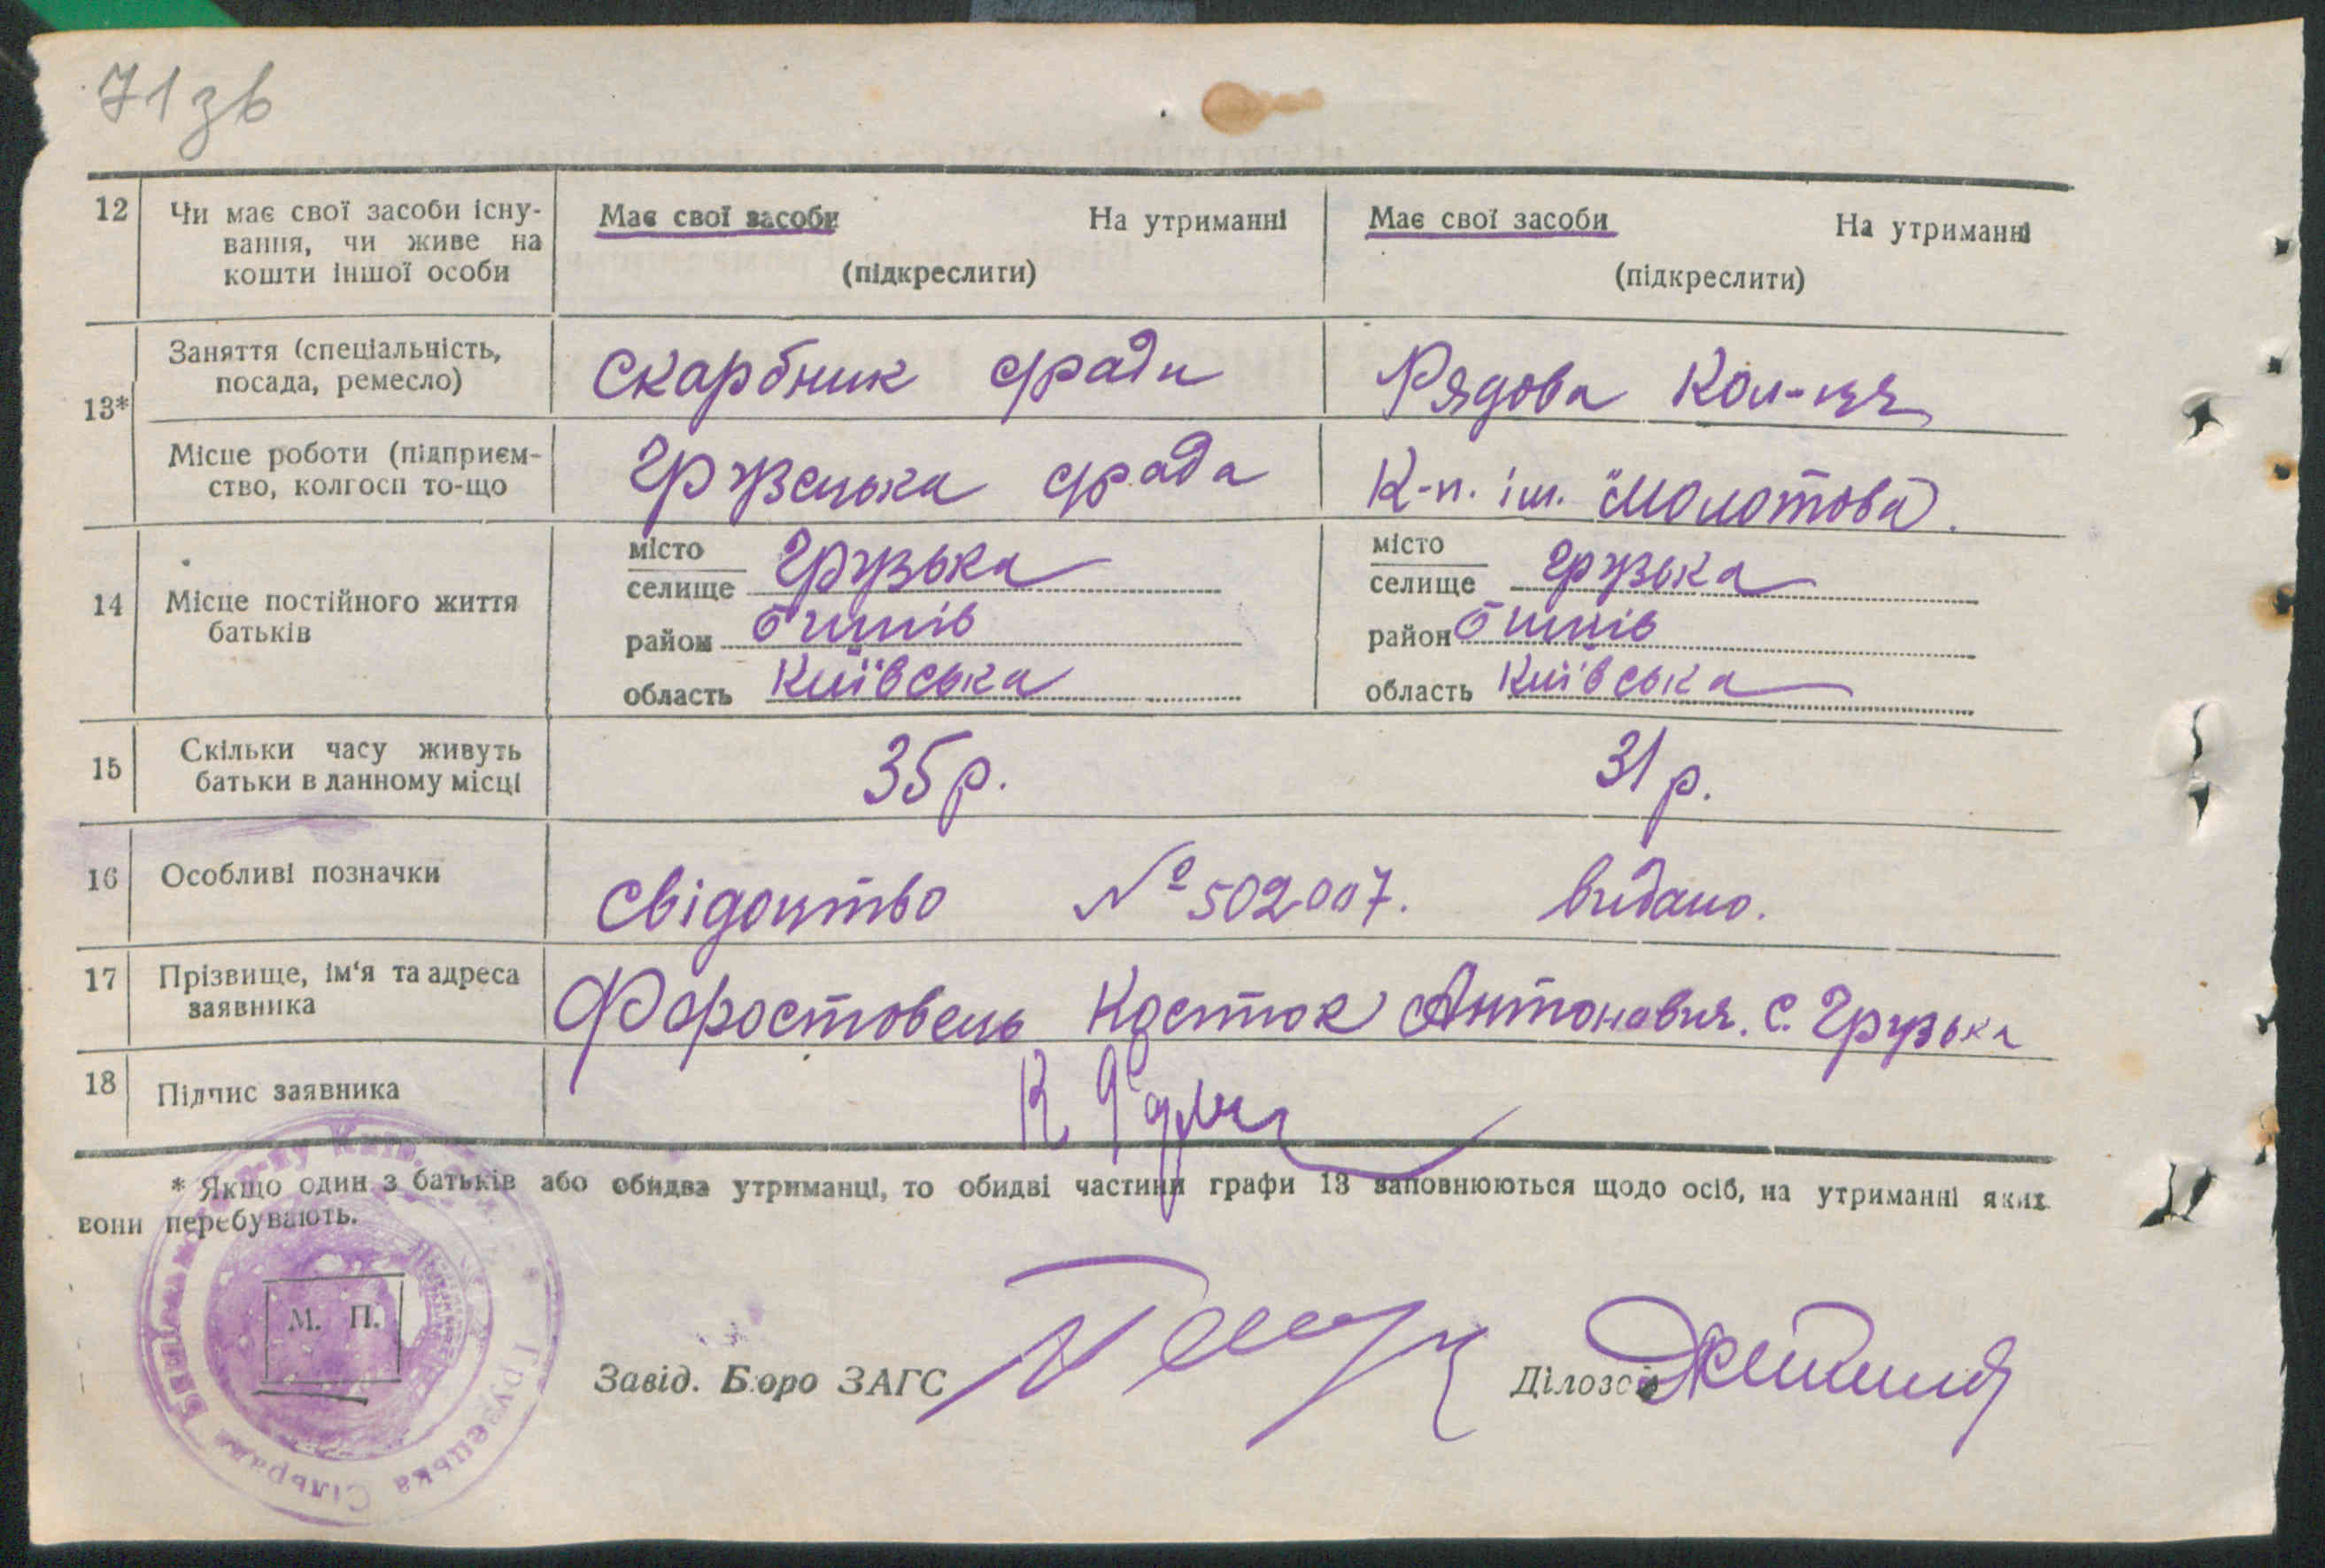 71зв
12 Чи має свої засоби існу- Має свої засоби На утриманні Має свої засоби На утриманні
вання, чи живе на
кошти іншої особи (підкреслити) (підкреслити)
13*
Заняття (спеціальність, Скарбник с/ради Рядова Кол-ця
посада, ремесло)
Місце роботи (підприєм- Грузська с/рада К-п. ім. "Молотова".
ство, колгосп то-що
14 Місце постійного життя
батьків
місто Грузька місто Грузька
селище селище
район район
область Київська область Київська
15 Скільки часу живуть 35 р. 31 р.
батьки в данному місці
16 Особливі позначки Свідоцтво № 502007. видано.
17 Прізвище, ім'я та адреса Форостовець Костюк Антонович. С. Грузька
заявника
18 Підпис заявника
* Якщо один з батьків або обидва утриманці, то обидві частини графи 13 заповнюються щодо осіб, на утриманні яких
вони перебувають.
М. П.
Завід. Бюро ЗАГС Ділозс
Грузецька Сільрада